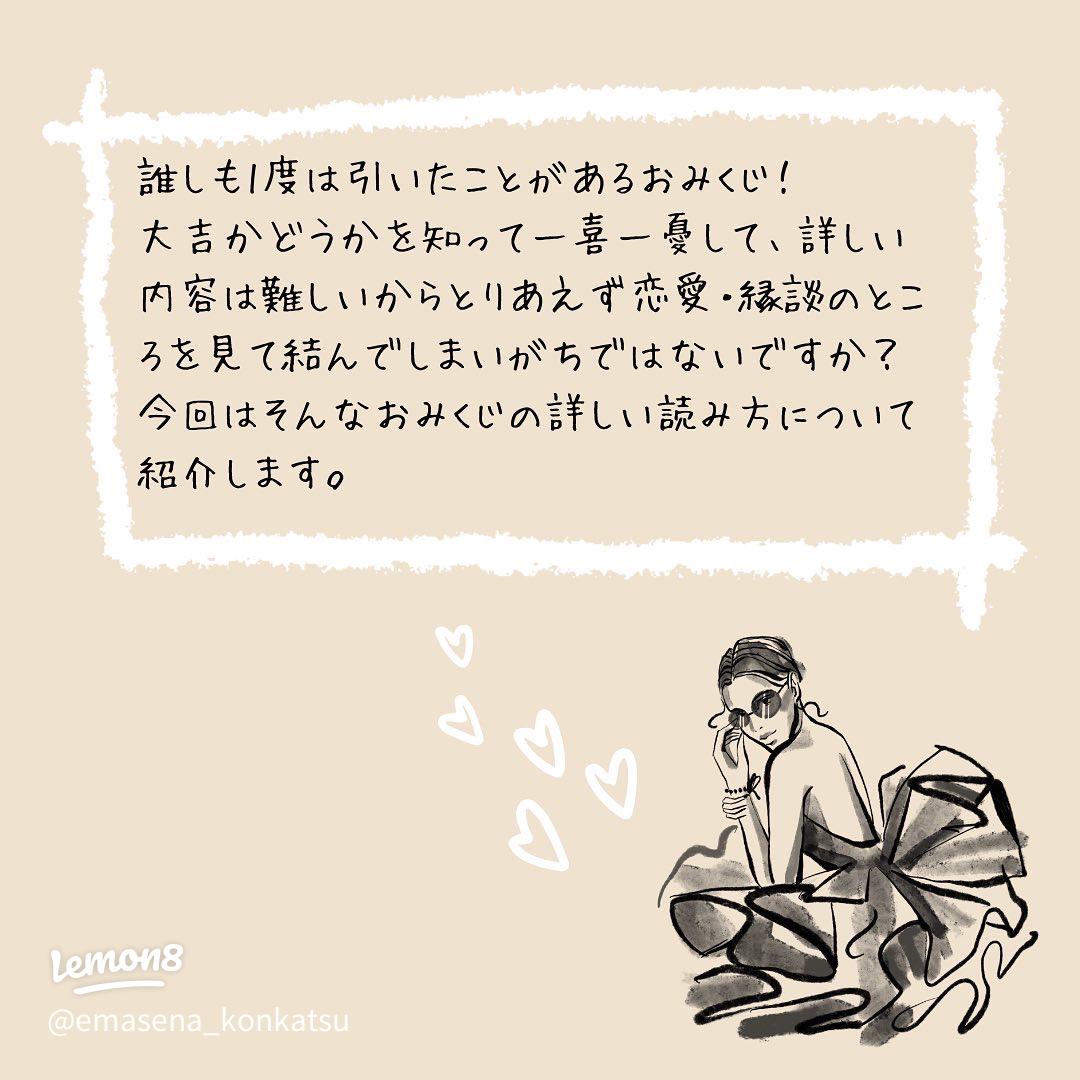 誰しも1度は引いたことがあるおみくじ!
大吉かどうかを知って一喜一憂して、詳しい
内容は難しいからとりあえず恋愛・縁談のとこ
ろを見て結んでしまいがちではないですか?
今回はそんなおみくじの詳しい読み方について
紹介します。
Lemon8
@emasena_konkatsu